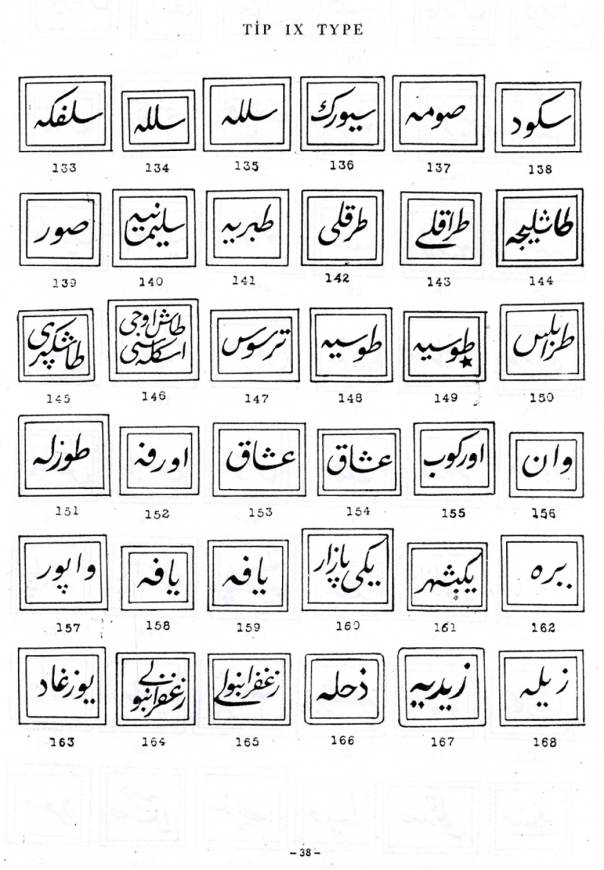 TİP IX TYPE
سلفكه سلله سلله سیورك صومه سكود
133 134 135 136 137 138
صور سلیمانیه طبریه طرقلی طراقلی طاشلیجه
139 140 141 142 143 144
طاشكپری طاش اوجی اسكله سی ترسوس طوسیه طوسیه طرابلس
145 146 147 148 149 150
طوزله اورفه عشاق عشاق اوركوب وان
151 152 153 154 155 156
واپور یافه یافه یكی پازار یكیشهر ببره
157 158 159 160 161 162
یوزغاد زعفرانبولی زعفرانبولی ذحله زیدیه زیله
163 164 165 166 167 168
– 38 –